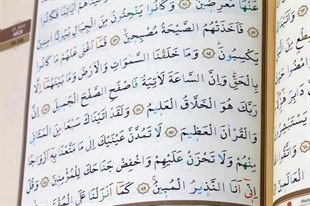 عَنْهَا مُعْرِضِينَ ﴿٨١﴾ وَكَانُوا يَنْحِتُونَ مِنَ الْجِبَالِ بُيُوتًا اٰمِنِينَ
فَاَخَذَتْهُمُ الصَّيْحَةُ مُصْبِحِينَ ﴿٨٣﴾ فَمَا اَغْنٰى عَنْهُمْ مَا كَانُوا
يَكْسِبُونَ ﴿٨٤﴾ وَمَا خَلَقْنَا السَّمٰوَاتِ وَالْاَرْضَ وَمَا بَيْنَهُمَا اِلَّا
بِالْحَقِّ وَاِنَّ السَّاعَةَ لَاٰتِيَةٌ فَاصْفَحِ الصَّفْحَ الْجَمِيلَ ﴿٨٥﴾ اِنَّ
رَبَّكَ هُوَ الْخَلَّاقُ الْعَلِيمُ ﴿٨٦﴾ وَلَقَدْ اٰتَيْنَاكَ سَبْعًا مِنَ الْمَثَانِي
وَالْقُرْاٰنَ الْعَظِيمَ ﴿٨٧﴾ لَا تَمُدَّنَّ عَيْنَيْكَ اِلٰى مَا مَتَّعْنَا بِهِ اَزْوَاجًا
مِنْهُمْ وَلَا تَحْزَنْ عَلَيْهِمْ وَاخْفِضْ جَنَاحَكَ لِلْمُؤْمِنِينَ ﴿٨٨﴾ وَقُلْ
اِنِّي اَنَا النَّذِيرُ الْمُبِينُ ﴿٨٩﴾ كَمَا اَنْزَلْنَا عَلَى الْمُقْتَسِمِينَ